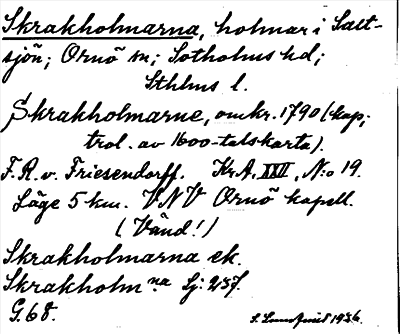 Skrakholmarna, holmar i Salt-
sjön; Ornö sn; Sotholms hd;
Sthlms l.
Skrakholmarne, omkr. 1790 (kop;
trol. av 1600-talskarta).
F.R. v. Friesendorff. Kr.A. XXVI, N:o 19.
Läge 5 km. VNV Ornö kapell.
(Vänd!)
Skrakholmarna ek.
Skrakholm na Sj: 237.
G.68.
S. Lundqvist 1936.